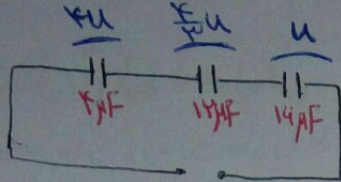 ۴u ۴/۳ u u
۴μF ۱۲μF ۱۶μF